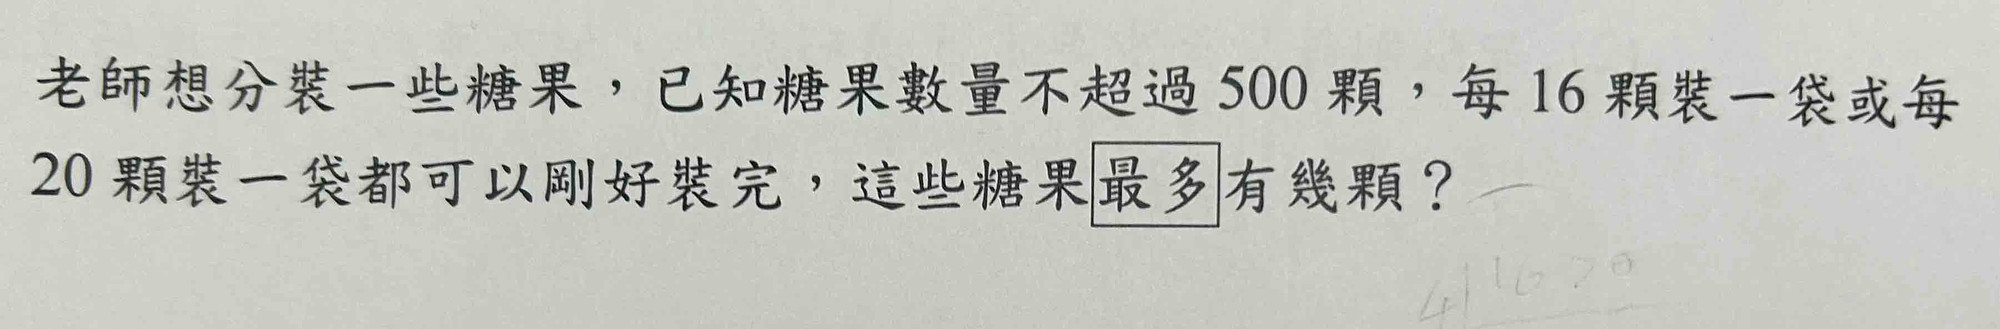 老師想分裝一些糖果，已知糖果數量不超過 500 顆，每 16 顆裝一袋或每
20 顆裝一袋都可以剛好裝完，這些糖果最多有幾顆？
4 16 20